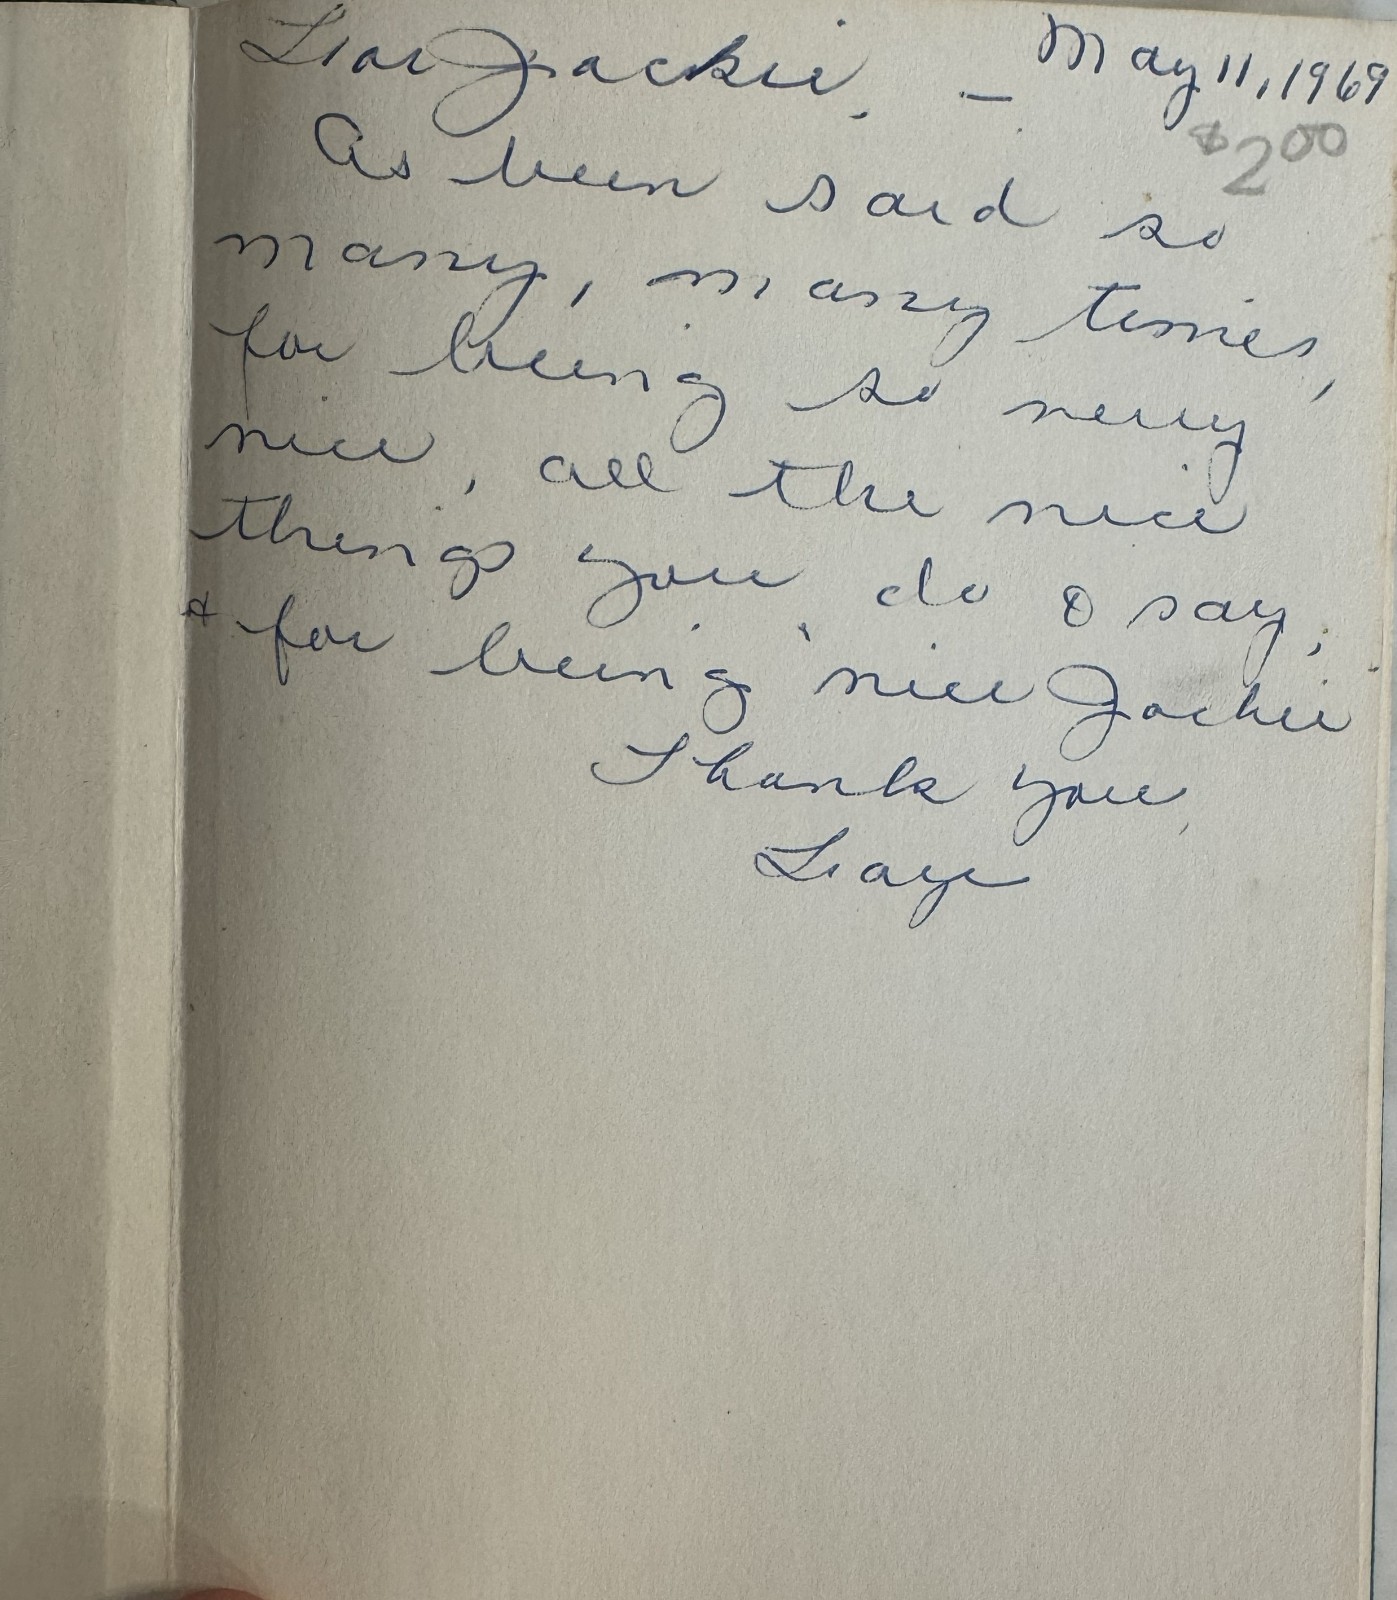 Dear Jackie, — May 11, 1969
$2.00
As been said so
many, many times,
for being so very
nice, all the nice
things you do & say,
& for being nice Jackie
Thank you,